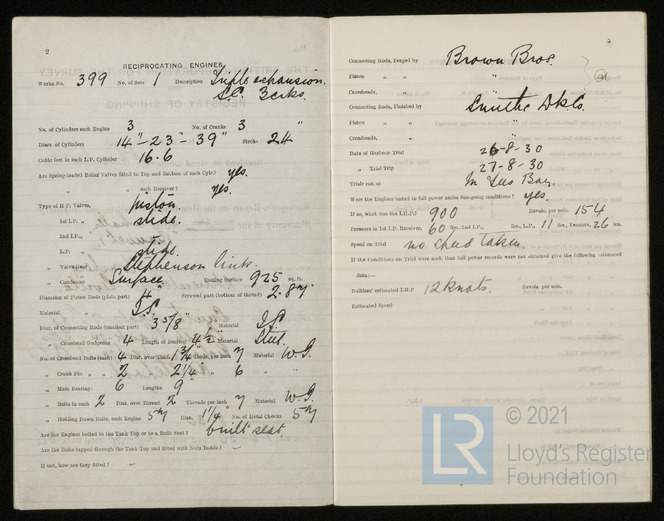 2
RECIPROCATING ENGINES.
Works No. 399 No. of Sets 1 Description Triple expansion.
No. of Cylinders each Engine 3 No. of Cranks 3
Diars of Cylinders 14" - 23 - 39" Stroke 24"
Cubic feet in each L.P. Cylinder 16.6
Are Spring-loaded Relief Valves fitted to Top and Bottom of each Cylr.? yes.
" " each Receiver? yes.
Type of H.P. Valves, piston
" 1st I.P. " slide.
" 2nd I.P. " —
" L.P. " slide.
" Valve Gear Stephenson link.
" Condenser Surface Cooling Surface 925 sq. ft.
Diameter of Piston Rods (plain part) 4" Screwed part (bottom of thread)
Material
Diar. of Connecting Rods (smallest part) 3 5/8" Material
" Crosshead Gudgeons 4 Length of Bearing 4 1/2" Material Steel.
No. of Crosshead Bolts (each) 4 Diar. over Thrd. 1 3/4" Thrds. per inch 7 Material W.I.
" Crank Pin " " 2 " 2 1/4" " 6 "
" Main Bearings 6 Lengths 9
" Bolts in each 2 Diar. over Thread 2 Threads per inch 7 Material W.I.
" Holding Down Bolts, each Engine 57 Diar. 1 1/4" No. of Metal Chocks 57
Are the Engines bolted to the Tank Top or to a Built Seat? built seat
Are the Bolts tapped through the Tank Top and fitted with Nuts Inside? —
If not, how are they fitted? —
Connecting Rods, Forged by Brown Bros.
Piston " " "
Crossheads, " "
Connecting Rods, Finished by
Piston " "
Crossheads, " "
Date of Harbour Trial 26-8-30
" Trial Trip 27-8-30
Trials run at Bay.
Were the Engines tested to full power under Sea-going conditions? yes.
If so, what was the I.H.P.? 900 Revols. per min. 154
Pressure in 1st I.P. Receiver, 60 lbs., 2nd I.P., lbs., L.P., 11 lbs., Vacuum, 26 ins.
Speed on Trial no card taken.
If the Conditions on Trial were such that full power records were not obtained give the following estimated
data:—
Builders' estimated I.H.P. 12 knots. Revols. per min.
Estimated Speed
LR © 2021
Lloyd's Register
Foundation